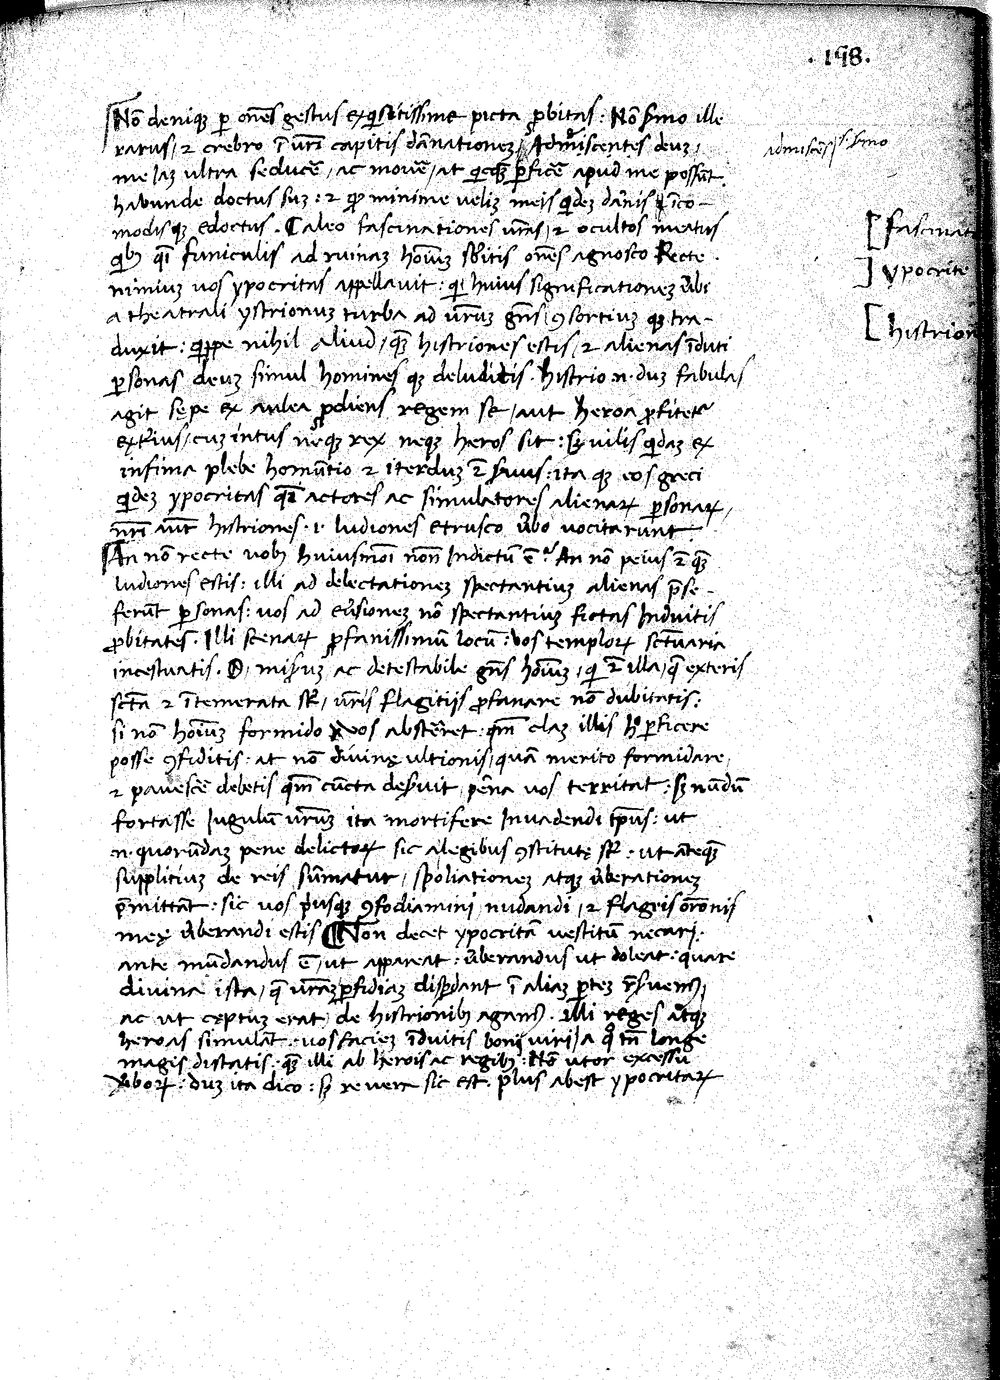 . 198 .
Nõ deniqꝫ ꝑ oñes gestus exqisitissime picta ꝓbitas : Nõ ẜmo ille
rarus / ⁊ crebro ĩ ur̃i capitis dãnationeꝫ / Admiscentes deuꝫ /
me iaꝫ ultra seducẽ / ac mouẽ / at qicqꝫ ꝑficẽ apud me possũt .
habunde doctus suꝫ : ⁊ qꝫ minime ueliꝫ meis qideꝫ dãnis ĩco-
modisqꝫ edoctus . Caleo fascinationes ur̃as / ⁊ ocultos meatus
qibꝫ funiculis ad ruinaꝫ hoĩuꝫ oñes agnosco Recte .
nimiuꝫ uos ypocritas appellauit : qi huius significationeꝫ ũbi
a theatrali ystrionuꝫ turba ad ur̃uꝫ gñs / ꝯsortiuꝫ qꝫ tra-
duxit : qippe nihil aliud / qꝫ histriones estis / ⁊ alienas ĩduti
ꝑsonas deuꝫ simul homines qꝫ deluditis . Histrio .n. duꝫ fabulas
agit sępe ex aulea ꝓdiens regem se / aut heroa ꝓfitet᷑
exterius / cuꝫ intus neqꝫ rex neqꝫ heros sit : sꝫ uilis qidaꝫ ex
infima plebe homũtio ⁊ iterduꝫ ẽ ẜuus : ita qꝫ eos greci
qideꝫ ypocritas qi actores ac simulatores alienaꝝ ꝑsonaꝝ /
nr̃i aũt histriones . i . ludiones etrusco ũbo uocitarunt .
An nõ recte uobꝫ huiusmõi nom̃ Indictũ ẽ ? An nõ peius ẽ qꝫ
ludiones estis : illi ad delectationeꝫ spectantiuꝫ alienas p̃se-
ferũt ꝑsonas : uos ad eũsioneꝫ nõ spectantiuꝫ fictas Induitis
ꝓbitates . Illi scenaꝝ ꝓfanissimũ locũ : Uos temploꝝ sctũaria
incestuatis . O / miseruꝫ ac detestabile gñs hoĩuꝫ / qi illa / q̃ exteris
sctã ⁊ ĩtemerata st̃ / ur̃is flagitijs ꝓfanare nõ dubitatis :
si nõ hoĩuꝫ formido uos absteret : qm̃ claꝫ illis hº ꝑficere
posse ꝯfiditis : at nõ diuinę ultionis / quã merito formidare /
⁊ pauescẽ debetis qm̃ cũcta deẜuit pẽna uos territat : sꝫ nũdũ
fortasse Iugulũ ur̃um ita mortifere Inuadendi tp̃us : ut
.n. quorũdaꝫ pene delictoꝝ sic a legibus ꝯstitutę st̃ : ut ãteqꝫ
suppliciuꝫ de reis sũmatur / spoliationeꝫ atqꝫ ũberationeꝫ
p̃mittãt : sic uos p̃usqꝫ ꝯfodiamini / nudandi / ⁊ flagris or̃onis
męę ũberandi estis Non decet ypocritã uestitũ necari :
ante mũdandus ẽ / ut appareat : ũberandus ut doleat : quare
diuina ista / q̃ ur̃aꝫ ꝑfidiaꝫ disꝑdant ĩ aliaꝫ ꝑteꝫ
ac ut cęptuꝫ erat / de histrionibꝫ agamꝰ . illi reges atqꝫ
heroas simulãt : uos facieꝫ ĩduitis boni uiri / a qº tñ longe
magis distatis : qꝫ illi ab herois ac regibꝫ : Nõ utor excessu
ũboꝝ : duꝫ ita dico : sꝫ re uera sic est . plus abest ypocritaꝝ
admiscẽs / ẜmo
[ fascinati
] ypocrite
[ histrion